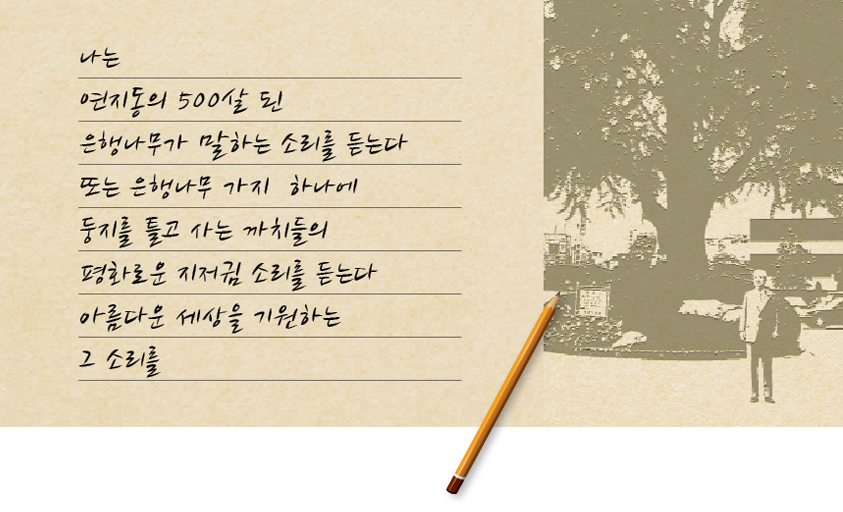 나는
연지동의 500살 된
은행나무가 말하는 소리를 듣는다
또는 은행나무 가지 하나에
둥지를 틀고 사는 까치들의
평화로운 지저귐 소리를 듣는다
아름다운 세상을 기원하는
그 소리를